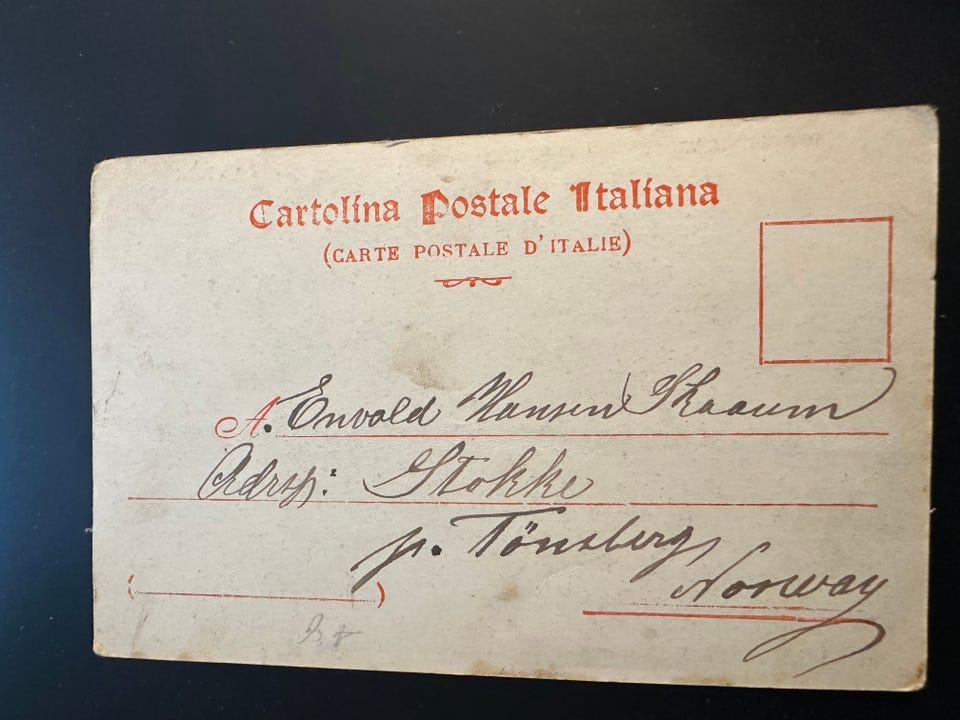 Cartolina Postale Italiana
(CARTE POSTALE D'ITALIE)
A. Envold Hansen Skaaum
Adrs:
Stokke
p. Tönsberg
Norway